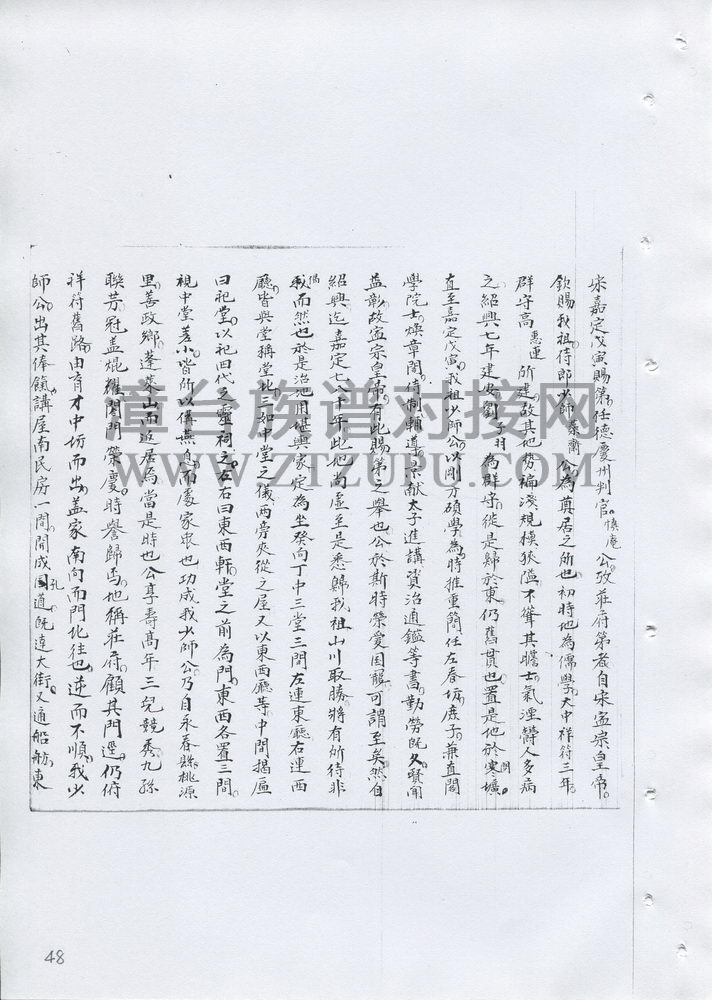 宋嘉定戊寅賜第任德慶州判官慎庵公攷莊府第者自宋寧宗皇帝
欽賜我祖侍郎少師公為奠居之所也初時地為儒學大中祥符三年
群守高惠連所建故其地勢褊淺規模狹隘不聳其瞻士氣湮鬱人多病
之紹興七年建安劉子羽為群守從是歸於東仍舊貫也置是地於寒壙閒
直至嘉定戊寅我祖少師公以剛方碩學為時推重簡任左春坊庶子兼直閣
學院士煥章閣侍制輔導景献太子進講資治通鑑等書勤勞既久聲聞
益彰故寧宗皇帝有此賜第之舉也公於斯時榮受國寵可謂至矣然自
紹興迄嘉定七八十年此地尚虛至是悉歸我祖山川取勝將有所待非
偶我而然也於是治地用堪輿家定為坐癸向丁中三堂三間左連東廳右連西
廳皆與堂稱堂北三如中堂之儀两旁夾從之屋又以東西廳等中間揭匾
曰祀堂以祀四代之靈祠之左右曰東西軒堂之前為門東西各置三間
視中堂差小皆所以偹燕息而處家衆也功成我少師公乃自永春縣桃源
里善政鄉蓬萊山而遷居焉當是時也公享壽髙年三兒競秀九孫
聯芳冠盖焜耀閥門榮慶時譽歸焉地稱莊府顧其門逕仍俯
祥符舊路由育才中坊而出盖家南向而門北往也逆而不順我少
師公出其俸鎮講屋南民房一間開成國道既達大街又通船舫東
孔
漳台族谱对接网
WWW.ZTZUPU.COM
48